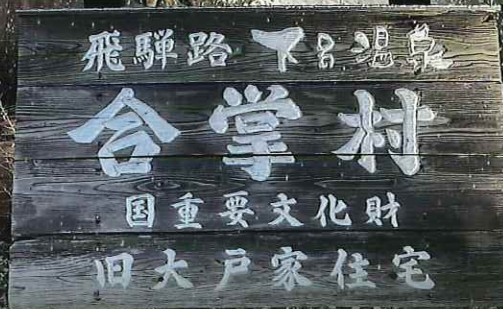 飛騨路 下呂温泉
合掌村
国重要文化財
旧大戸家住宅